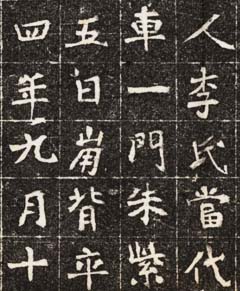 人李氏當代
車一門朱紫
五日崩背平
四年九月十